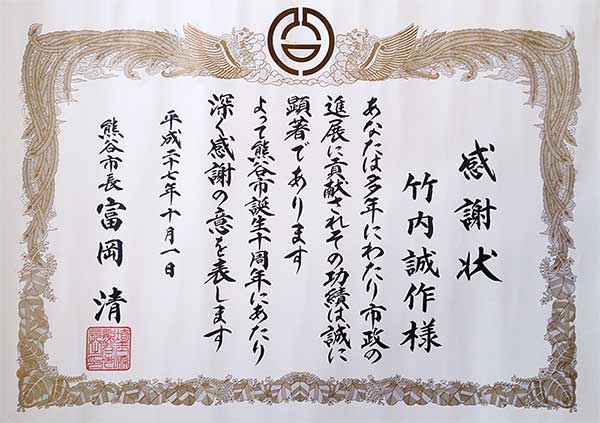 感謝状
竹内誠作様
あなたは多年にわたり市政の
進展に貢献されその功績は誠に
顕著であります
よって熊谷市誕生十周年にあたり
深く感謝の意を表します
平成二十七年十月一日
熊谷市長 富岡 清